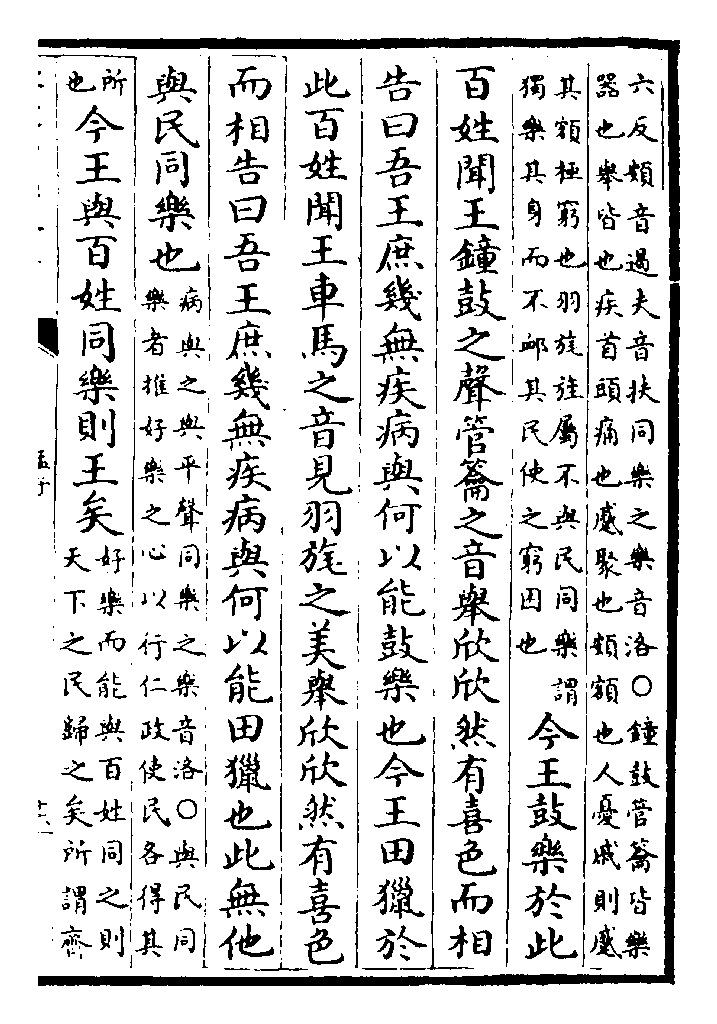 六反頞音遏夫音扶同樂之樂音洛○鐘鼓管籥皆樂
器也舉皆也疾首頭痛也蹙聚也頞額也人憂戚則蹙
其額極窮也羽旄旌屬不與民同樂謂
獨樂其身而不卹其民使之窮困也
今王鼓樂於此
百姓聞王鐘鼓之聲管籥之音舉欣欣然有喜色而相
告曰吾王庶幾無疾病與何以能鼓樂也今王田獵於
此百姓聞王車馬之音見羽旄之美舉欣欣然有喜色
而相告曰吾王庶幾無疾病與何以能田獵也此無他
與民同樂也
病與之與平聲同樂之樂音洛○與民同
樂者推好樂之心以行仁政使民各得其
所
也
今王與百姓同樂則王矣
好樂而能與百姓同之則
天下之民歸之矣所謂齊
孟子